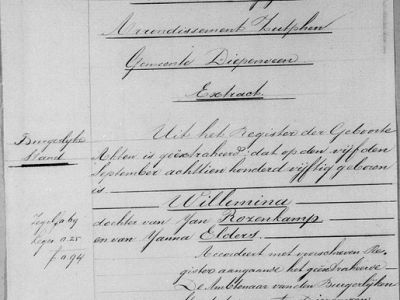 Arrondissement Zutphen
Gemeente Diepenveen
Extract
Burgerlyke
Stand
Uit het Register der Geboorte
Akten is geëxtraheerd: dat op den vijfden
September achttien honderd vijftig geboren
is
Willemina
dochter van Jan Rozenkamp
en van Janna Elders.
Zegel
Leges 0.25
f 0.94
Accordeert met voorschreven Re-
gister aangaande het geëxtraheerde
De Ambtenaar van den Burgerlijken